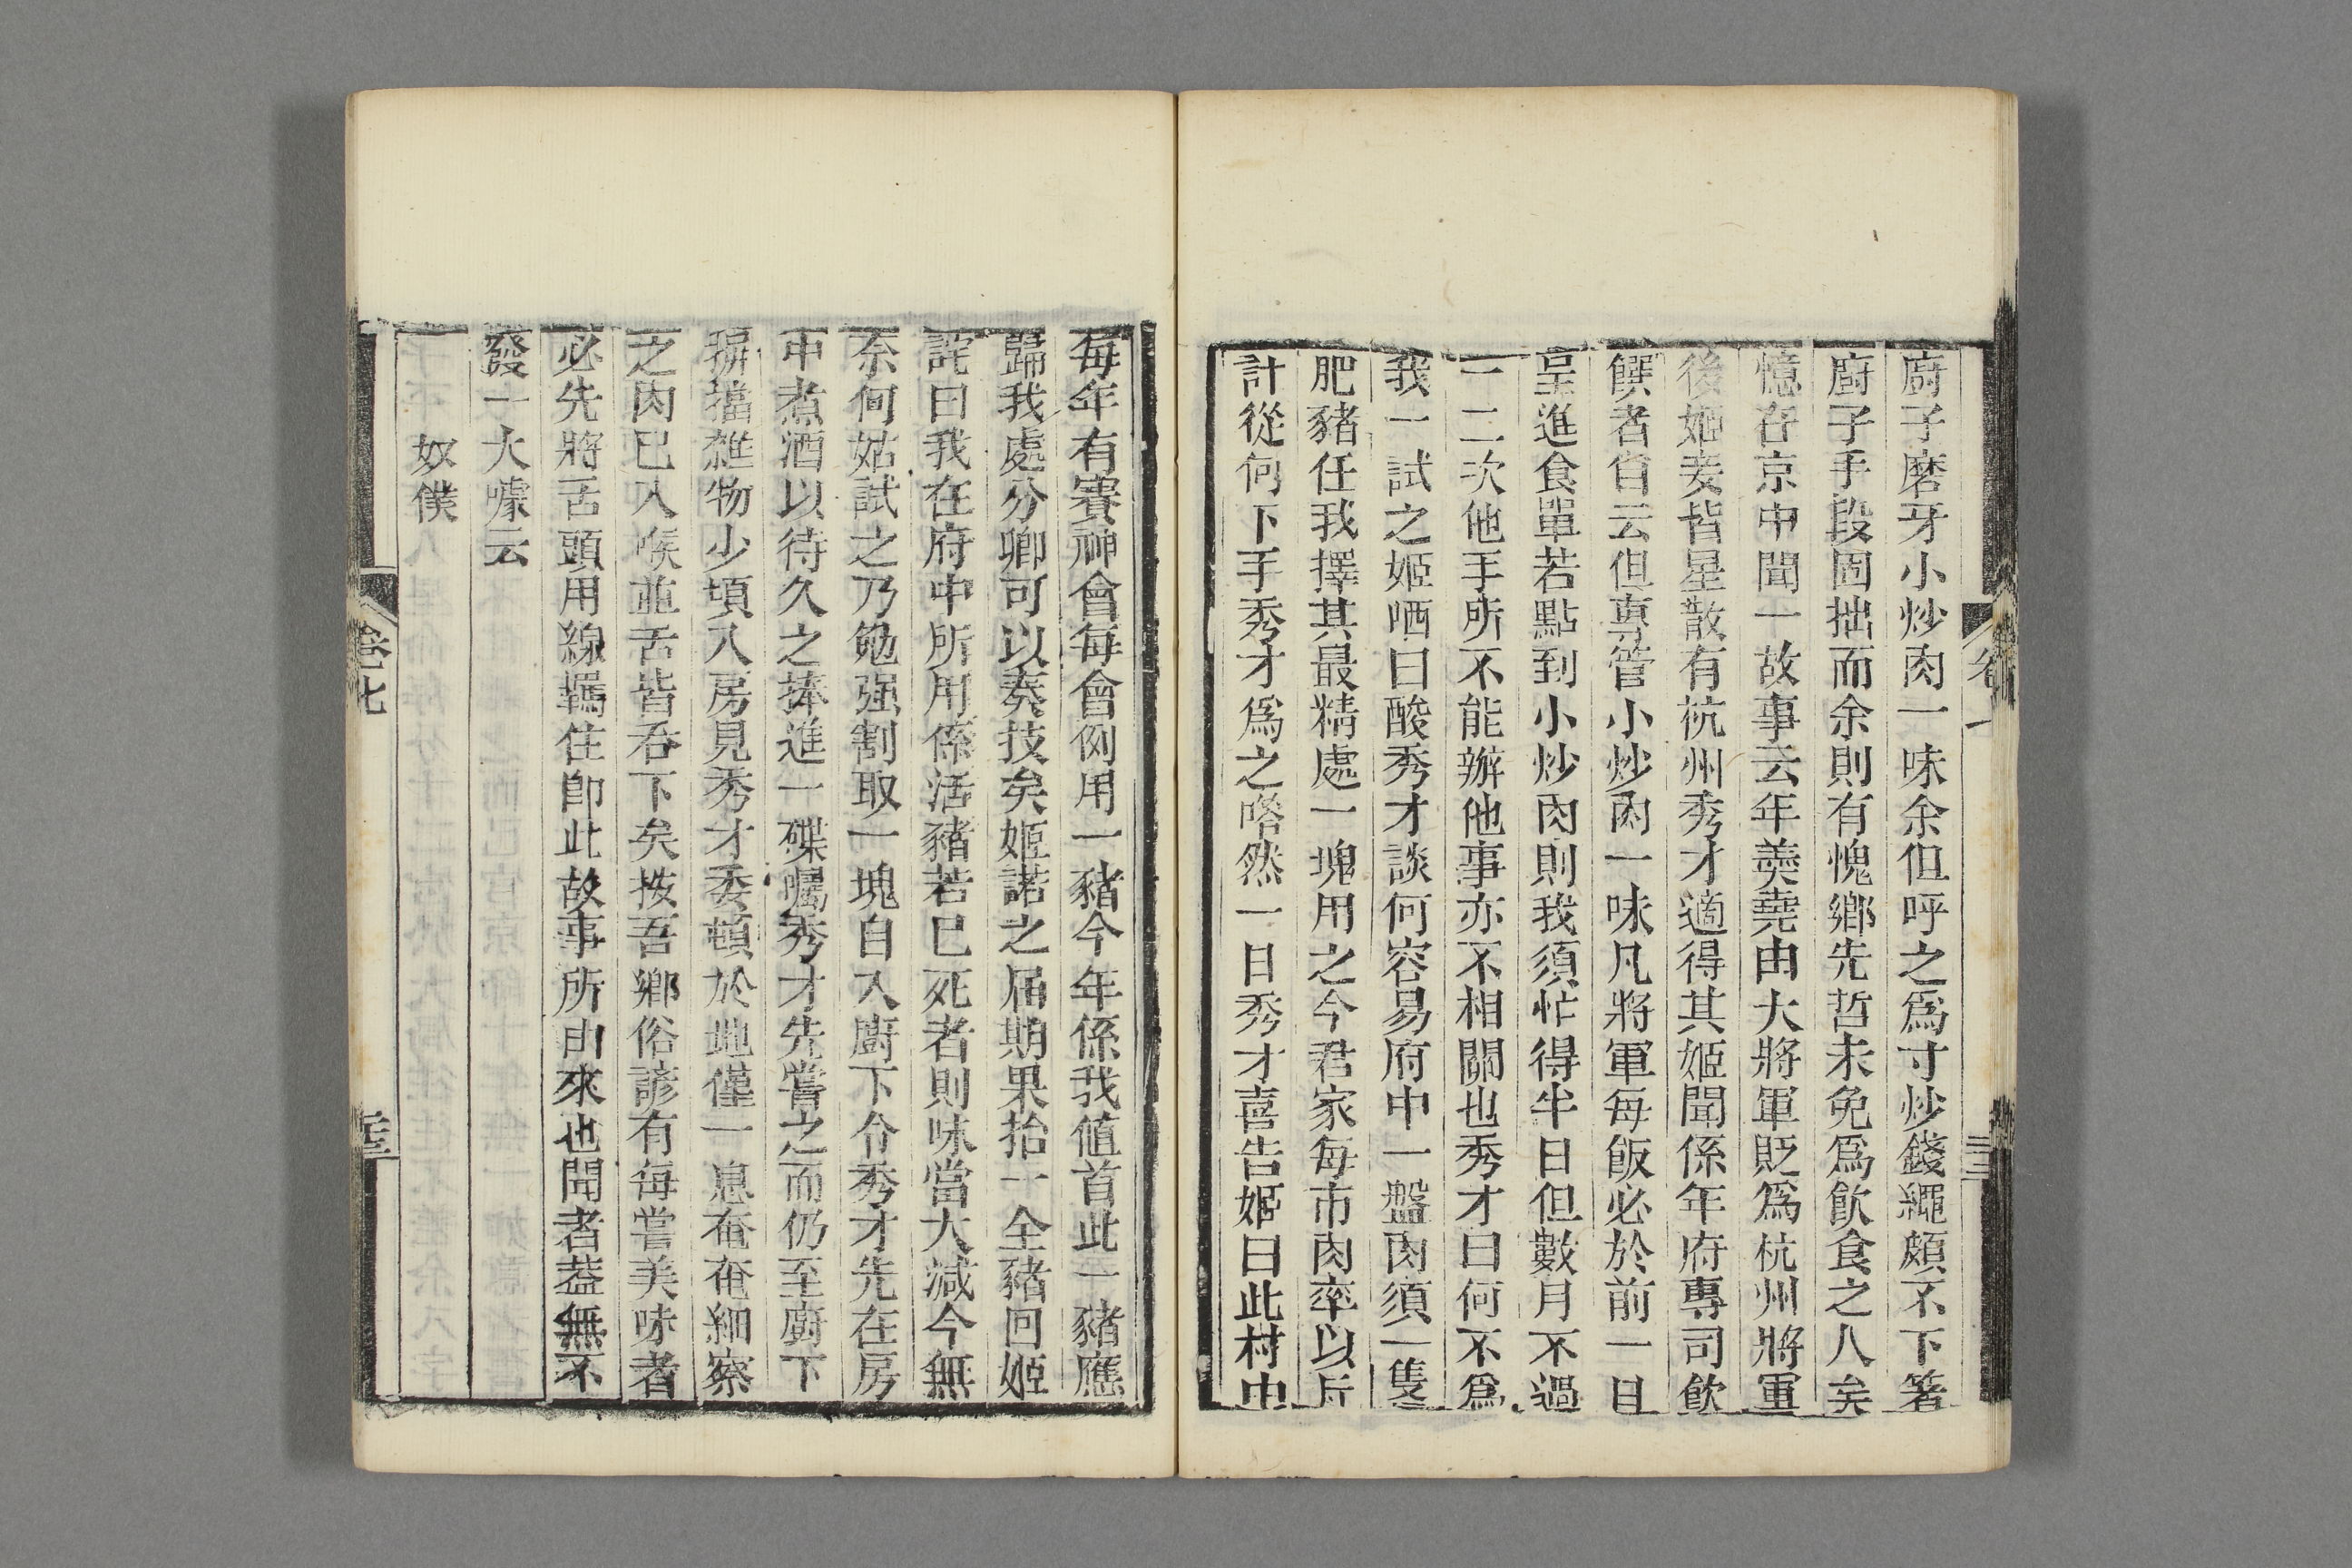 廚子磨牙小炒肉一味余但呼之爲寸炒錢繩頗不下箸
廚子手段固拙而余則有愧鄉先哲未免爲飲食之人矣
憶在京中聞一故事云年羮堯由大將軍貶爲杭州將軍
後姬妾皆星散有杭州秀才適得其姬聞係年府專司飲
饌者自云但專管小炒肉一味凡將軍每飯必於前一日
呈進食單若點到小炒肉則我須忙得半日但數月不過
一二次他手所不能辦他事亦不相關也秀才曰何不爲
我一試之姬哂曰酸秀才談何容易府中一盤肉須一隻
肥豬任我擇其最精處一塊用之今君家每市肉率以斤
計從何下手秀才爲之嗒然一日秀才喜告姬曰此村中
卷七
三十二
每年有賽神會每會例用一豬今年係我値首此一豬應
歸我處分卿可以奏技矣姬諾之届期果抬一全豬回姬
詫曰我在府中所用係活豬若已死者則味當大減今無
奈何姑試之乃勉强割取一塊自入廚下令秀才先在房
中煮酒以待久之捧進一碟囑秀才先嘗之而仍至廚下
摒擋雜物少頃入房見秀才委頓於地僅一息奄奄細察
之肉已入喉並舌皆吞下矣按吾鄉俗諺有每嘗美味者
必先將舌頭用線羈住卽此故事所由來也聞者葢無不
發一大噱云
奴僕
卷七